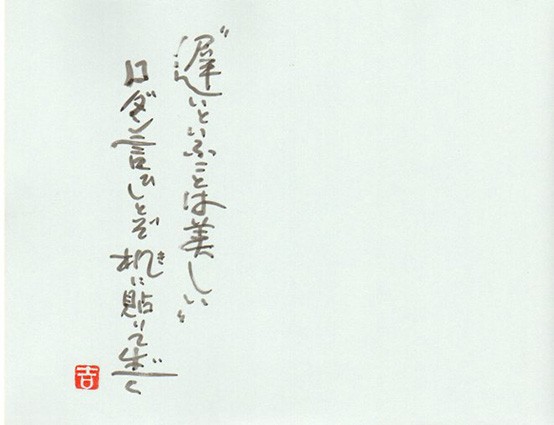 〝遅いといふことは美しい〟
ロダン言ひしとぞ 机に貼りて
吉